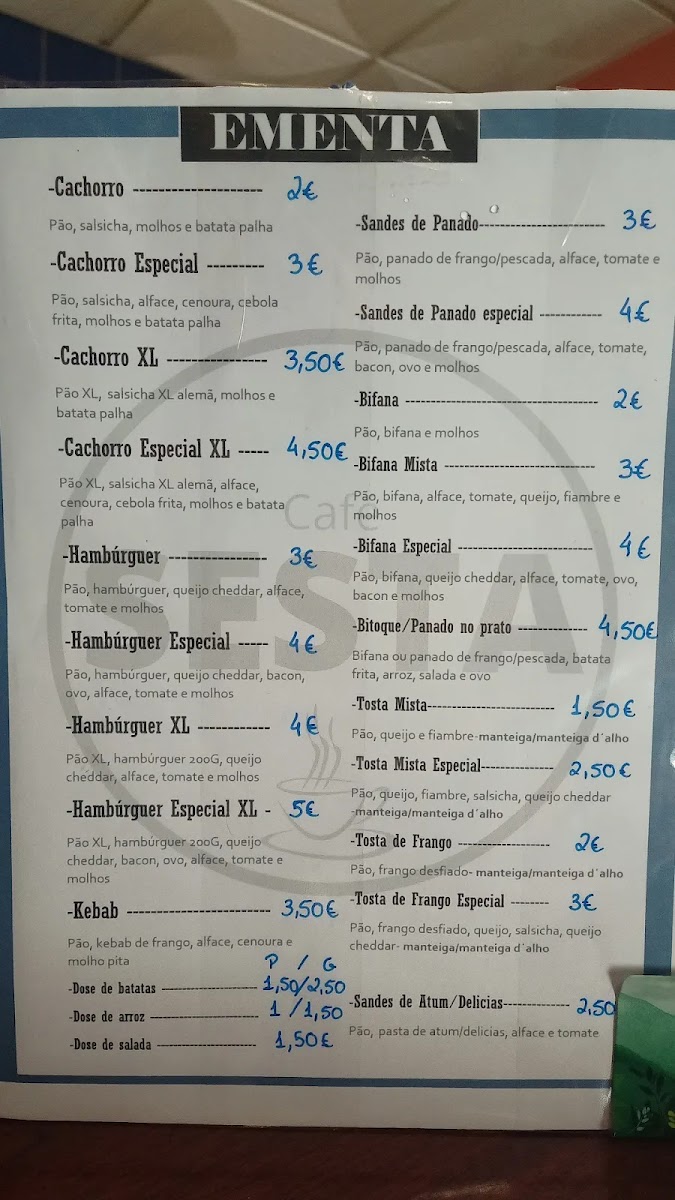 EMENTA
-Cachorro -------------------- 2€
Pão, salsicha, molhos e batata palha
-Cachorro Especial --------- 3€
Pão, salsicha, alface, cenoura, cebola
frita, molhos e batata palha
-Cachorro XL ---------------- 3,50€
Pão XL, salsicha XL alemã, molhos e
batata palha
-Cachorro Especial XL ----- 4,50€
Pão XL, salsicha XL alemã, alface,
cenoura, cebola frita, molhos e batata
palha
-Hambúrguer ---------------- 3€
Pão, hambúrguer, queijo cheddar, alface,
tomate e molhos
-Hambúrguer Especial ----- 4€
Pão, hambúrguer, queijo cheddar, bacon,
ovo, alface, tomate e molhos
-Hambúrguer XL ------------ 4€
Pão XL, hambúrguer 200G, queijo
cheddar, alface, tomate e molhos
-Hambúrguer Especial XL - 5€
Pão XL, hambúrguer 200G, queijo
cheddar, bacon, ovo, alface, tomate e
molhos
-Kebab ----------------------- 3,50€
Pão, kebab de frango, alface, cenoura e
molho pita
P / G
-Dose de batatas -------------------- 1,50/2,50
-Dose de arroz ----------------------- 1 / 1,50
-Dose de salada --------------------- 1,50€
-Sandes de Panado------------------------ 3€
Pão, panado de frango/pescada, alface, tomate e
molhos
-Sandes de Panado especial ------------ 4€
Pão, panado de frango/pescada, alface, tomate,
bacon, ovo e molhos
-Bifana ------------------------------------- 2€
Pão, bifana e molhos
-Bifana Mista ----------------------------- 3€
Pão, bifana, alface, tomate, queijo, fiambre e
molhos
-Bifana Especial -------------------------- 4€
Pão, bifana, queijo cheddar, alface, tomate, ovo,
bacon e molhos
-Bitoque/Panado no prato ------------- 4,50€
Bifana ou panado de frango/pescada, batata
frita, arroz, salada e ovo
-Tosta Mista------------------------- 1,50€
Pão, queijo e fiambre-manteiga/manteiga d´alho
-Tosta Mista Especial-------------- 2,50€
Pão, queijo, fiambre, salsicha, queijo cheddar
-manteiga/manteiga d´alho
-Tosta de Frango ------------------ 2€
Pão, frango desfiado- manteiga/manteiga d´alho
-Tosta de Frango Especial -------- 3€
Pão, frango desfiado, queijo, salsicha, queijo
cheddar- manteiga/manteiga d´alho
-Sandes de Atum/Delicias------------- 2,50
Pão, pasta de atum/delicias, alface e tomate
Café
SESTA